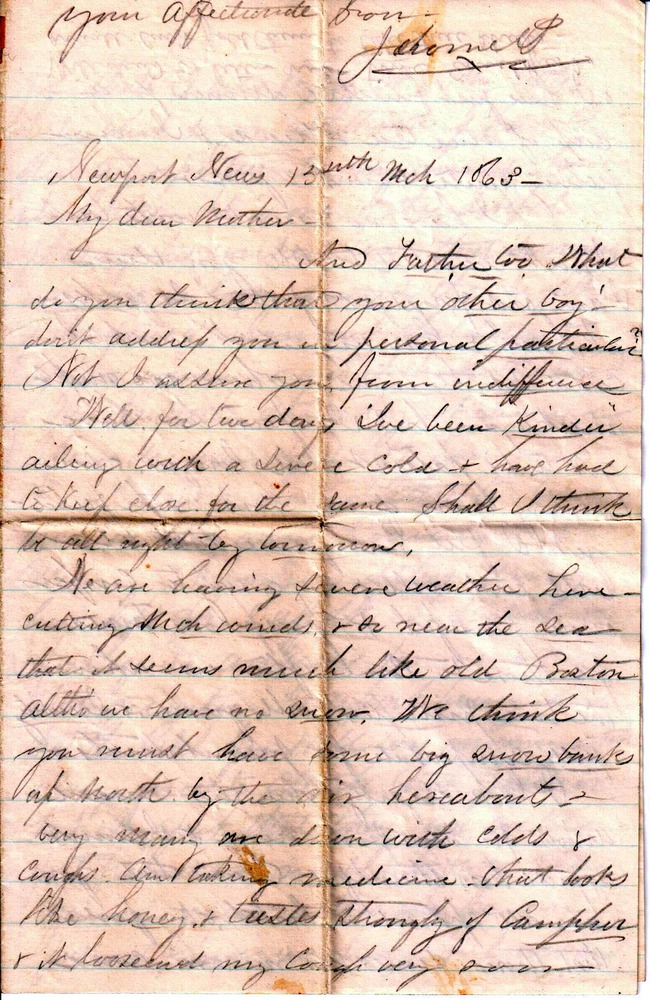 your affectionate son
Jerome P
Newport News 15th Mch 1863 —
My dear Mother —
And Father too. What
do you think that your other boy
don't address you in personal particular?
Not I assure you, from indifference
Well for two days I've been "Kinder"
ailing with a severe cold & have had
to keep close for the same. Shall I think
be all right by tomorrow.
We are having severe weather here —
cutting Mch winds, & so near the sea
that it seems much like old Boston
altho we have no snow. We think
you must have some big snow banks
up North by the air hereabouts —
Very many are down with colds &
coughs. Am taking medicine that looks
like honey, & tastes strongly of Camphor
& it loosened my cough very soon —